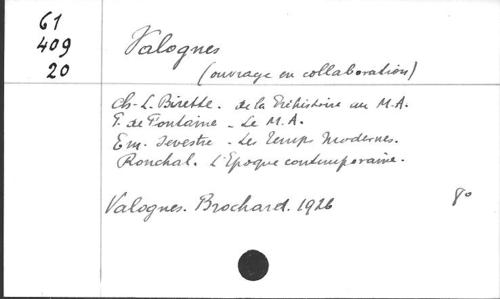 61
409
20
Valognes
(ouvrage en collaboration)
Ch-L. Birette. de la Préhistoire au M.A.
P. de Fontaine - Le M.A.
Em. Sevestre - Les Temps modernes.
Ronchal. L'Epoque contemporaine.
Valognes. Brochard. 1926 8°